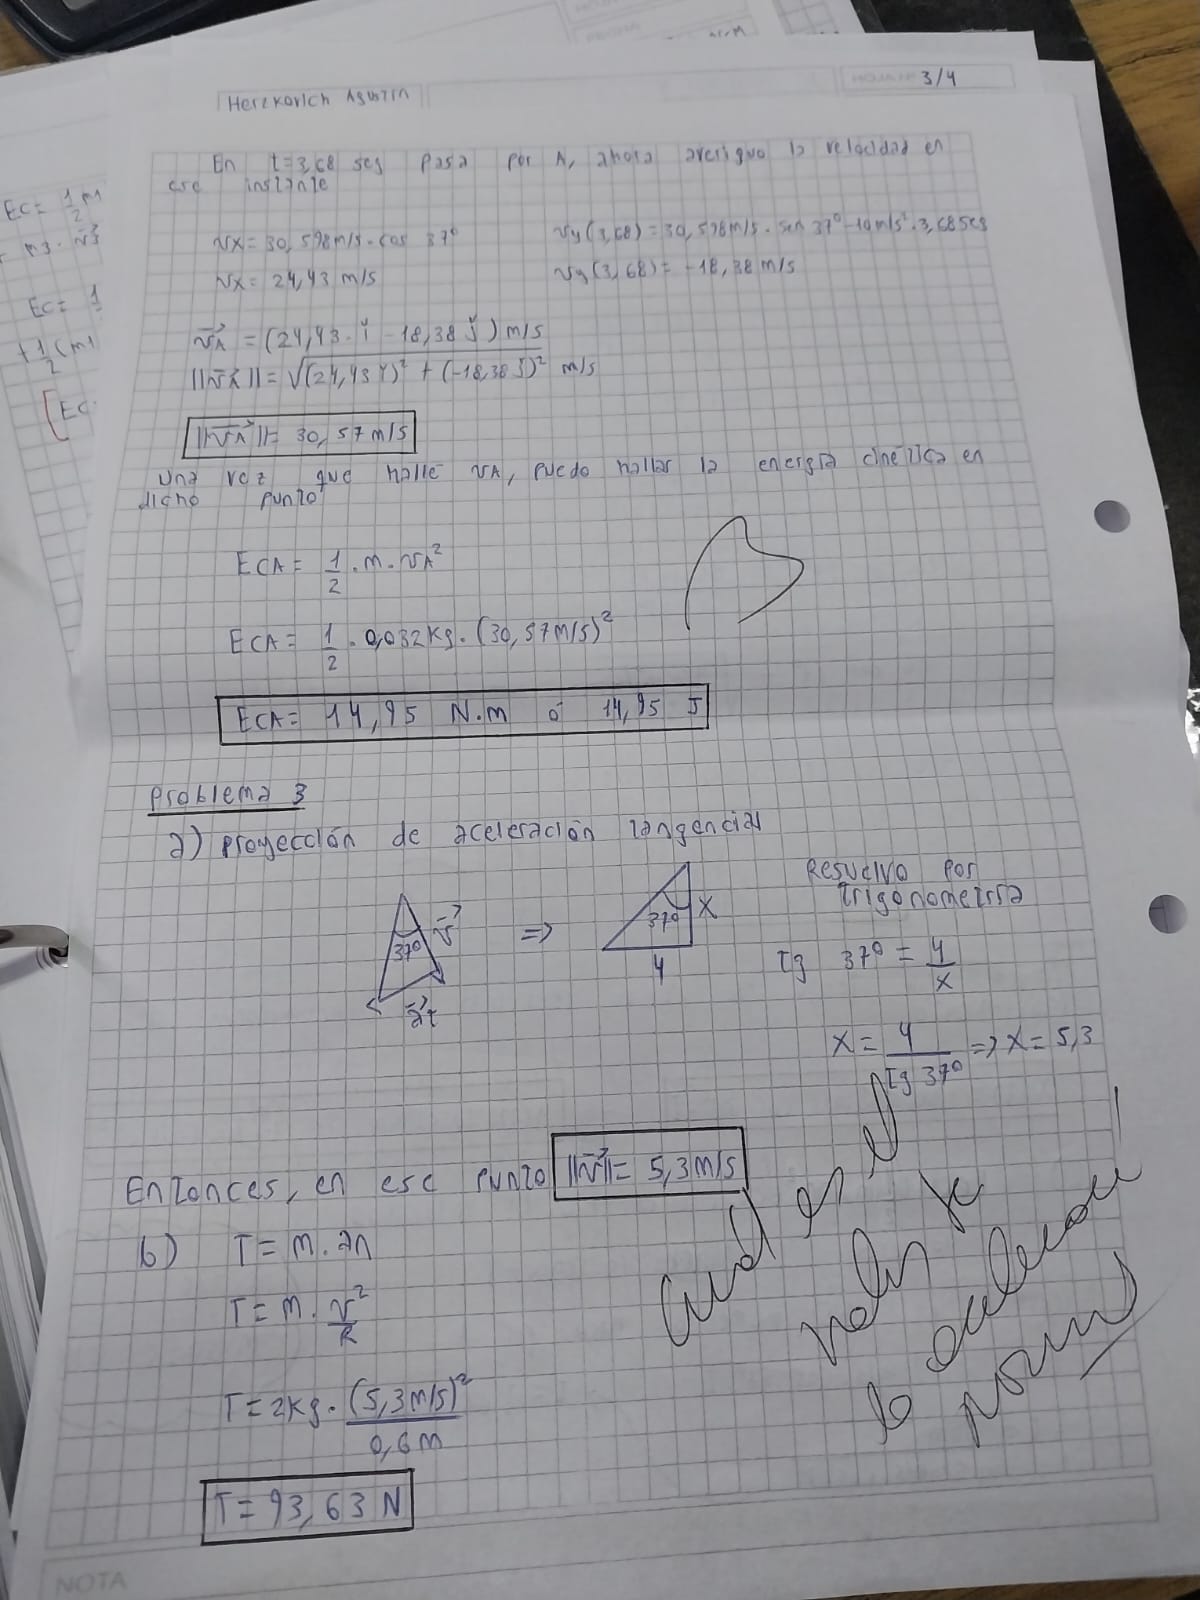 HOJA Nº 3/4
Herzkovich Agustin
En t=3,68 seg pasa por A, ahora averiguo la velocidad en
ese instante
vx= 30,598m/s. cos 37º
vy(3,68)=30,598m/s. sen 37º-10m/s². 3,68seg
vx= 24,43 m/s
vy(3,68)= -18,38 m/s
vA = (24,43. i - 18,38 j) m/s
||vA||= √(24,43 i)² + (-18,38 j)² m/s
||vA||= 30,57m/s
una vez que hallé vA, puedo hallar la energía cinética en
dicho punto
ECA= 1/2 . m. vA²
ECA= 1/2 . 0,032kg. (30,57m/s)²
ECA= 14,95 N.m ó 14,95 J
Ec= 1/2 m1
m3. v3
Ec= 1
+1/2 (m1
[Ec
Problema 3
a) proyección de aceleración tangencial
Resuelvo por
trigonometría
37º v
at
=>
37º x
4
tg 37º = 4/x
x= 4/tg 37º => x= 5,3
Entonces, en ese punto ||v||= 5,3m/s
b) T= m. an
T= m. v²/R
T= 2kg. (5,3m/s)²/0,6m
T= 93,63 N
Cuál es el
valor de
la aceleración
normal
NOTA